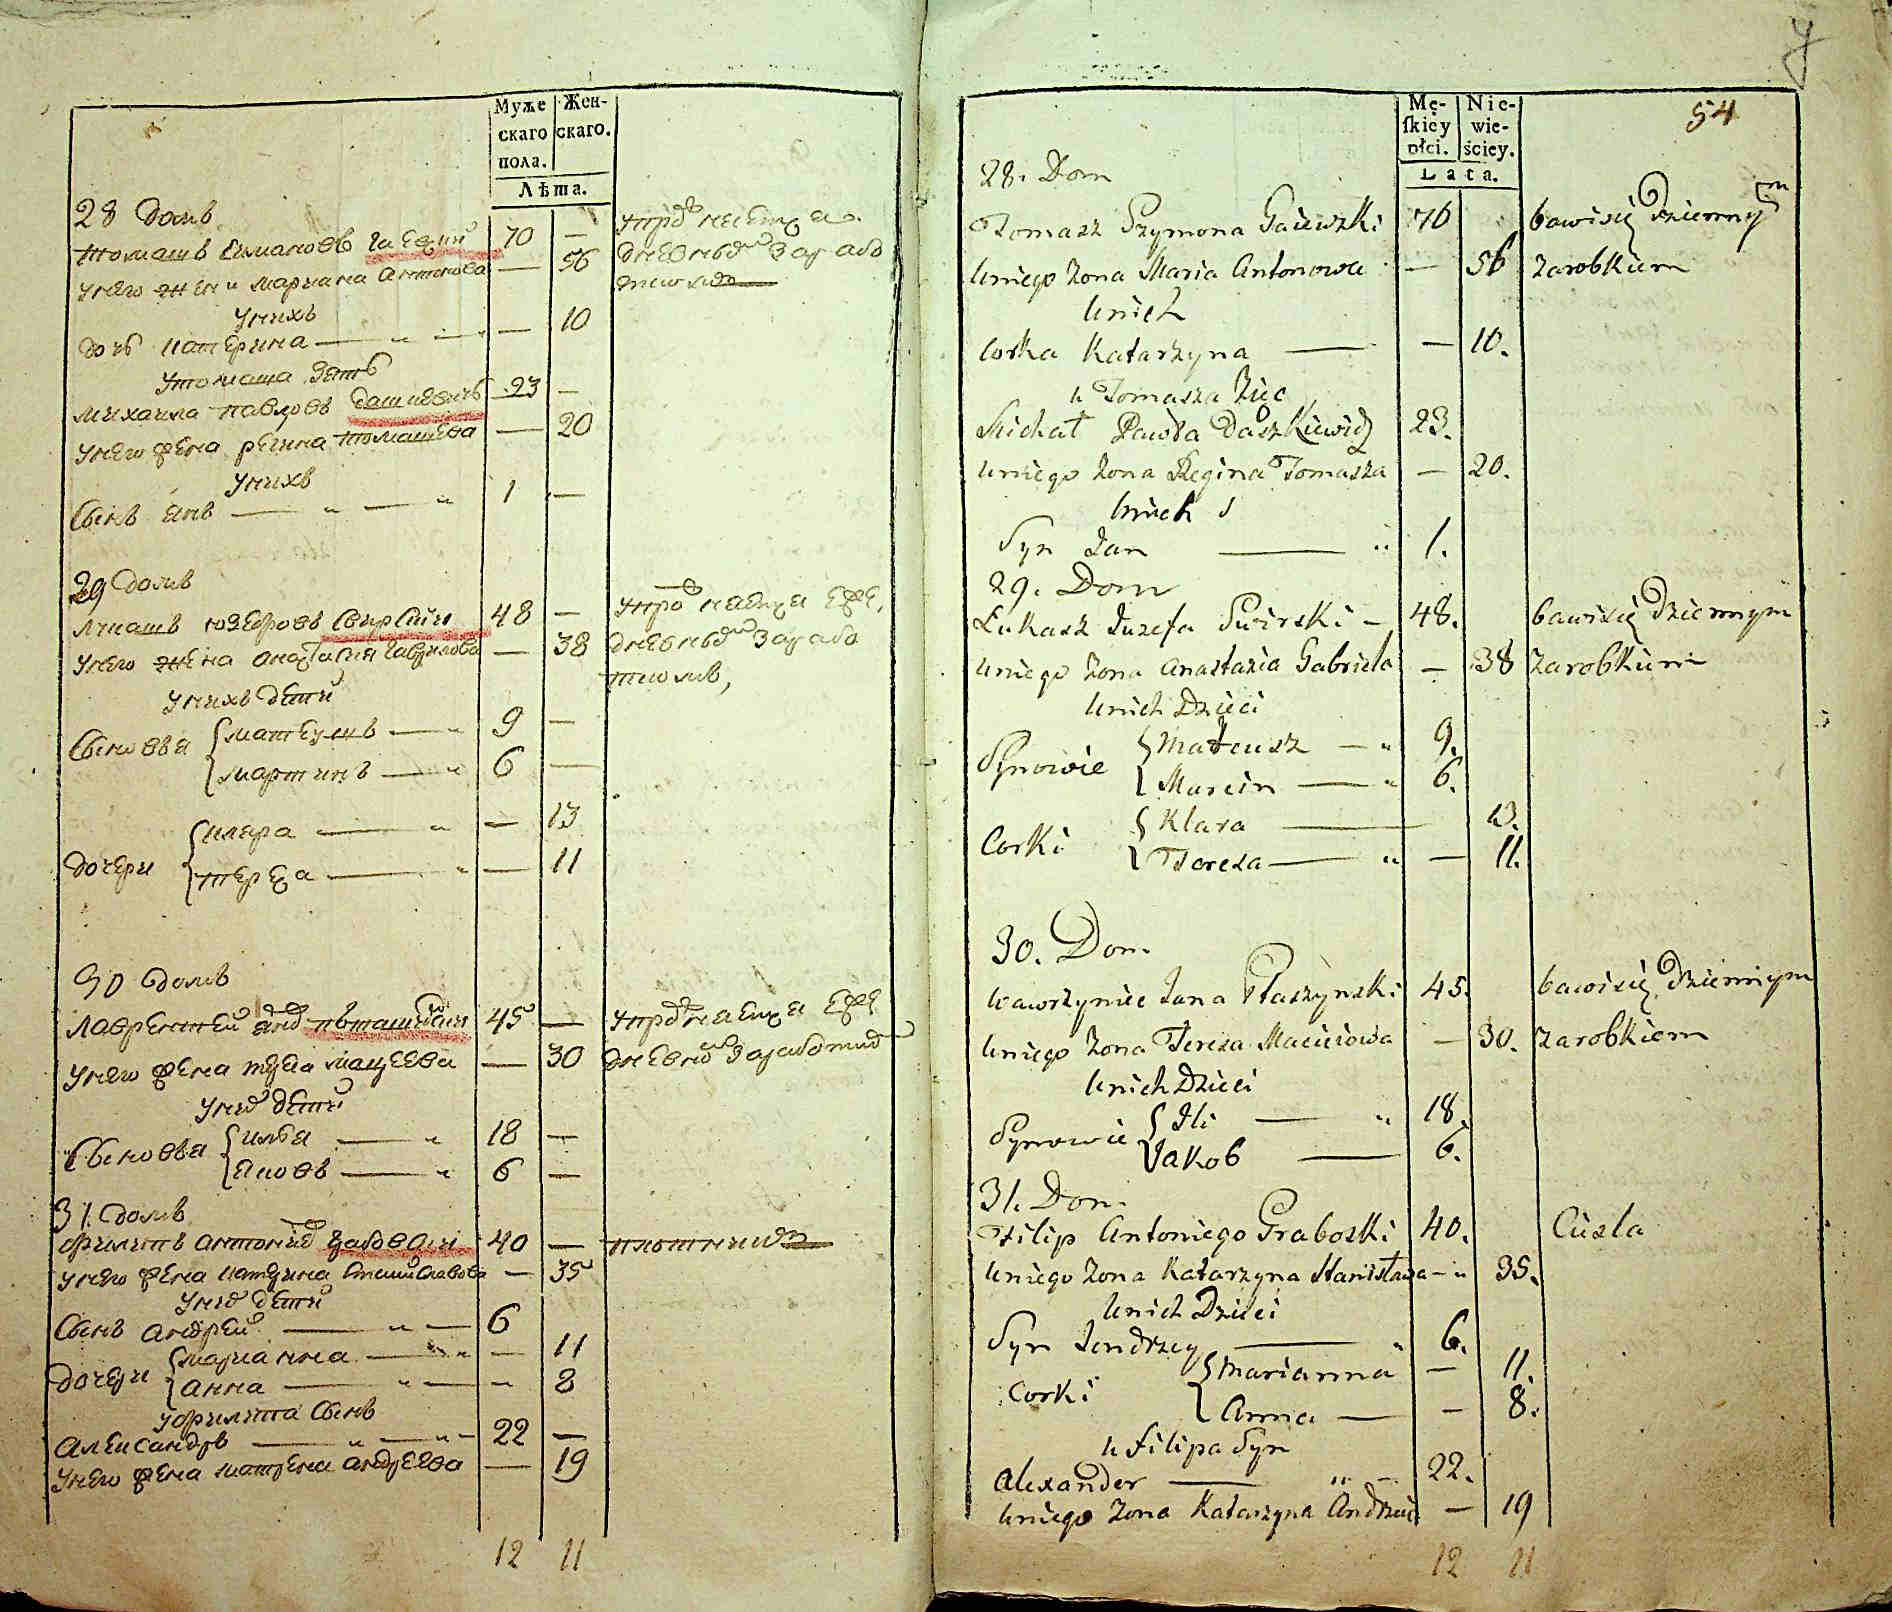 Муже
скаго
пола.
Жен-
скаго.
Лѣта.
28 домъ
томашъ Симановъ Гаевский 70 —
унего жена мариана антонова — 56
дневным зарабо
унихъ
дочь катерина — — 10
утомаша зять
михаила павловъ дашкевичь 23 —
унего жена регина томашева — 20
унихъ
Сынъ янъ — 1 —
29 домъ
лукашъ юзефовъ Свирский 48 —
унего жена анастасия гаврилова — 38
дневным зарабо
ткомъ,
унихъ дети
Сыновья
матеушъ — 9 —
мартинъ — 6 —
дочери
клара — — 13
тереза — — 11
30 домъ
лаврентей янов пташинский 45 —
унего жена тереза мацеева — 30
уних дети
Сыновья
илья — 18 —
яковъ — 6 —
31. домъ
филипъ антонов грабовский 40 —
плотник
унего жена катерина Станиславова — 35
уних дети
Сынъ андрей — 6
дочери
марианна — — 11
анна — — 8
уфилипа Сынъ
александръ — 22 —
унего жена катерена андреева — 19
12 11
у
54
Mę-
ſkiey
płci.
Nie-
wie-
ściey.
Lata.
28. Dom
Tomasz Szymona Gaiewski 70 bawisię Dziennym
uniego Zona Maria Antonowa — 56 zarobkiem
unich
Corka Katarzyna — — 10.
u Tomasza Zięc
Michał Pawła Daszkiewicz 23.
uniego Zona Regina Tomasza — 20.
unich
Syn Jan — 1.
29. Dom
Łukasz Juzefa Swirski — 48. bawisię Dziennym
uniego Zona Anastazia Gabriela — 38 zarobkiem
unich Dzieci
Synowie
Mateusz — 9.
Marcin — 6.
Corki
Klara — 13.
Teresa — — 11.
30. Dom
Wawrzyniec Jana Ptaszynski 45. bawisię Dziennym
uniego Zona Teresa Macieiowa — 30. zarobkiem
unich Dzieci
Synowie
Ili — 18.
Jakob — 6.
31. Dom
Filip Antoniego Graboski 40. Ciesla
uniego Zona Katarzyna Stanisława — 35.
unich Dzieci
Syn Jendrzey — 6.
Corki
Marianna — 11.
Anna — — 8.
u Filipa Syn
Alexander — 22.
uniego Zona Katarzyna Andrzeia — 19
12 11